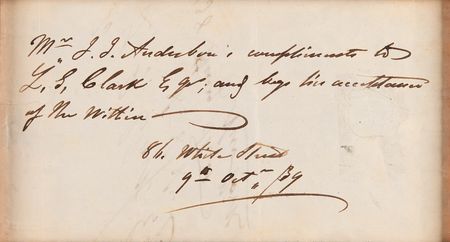 Mr J. J. Anderson's compliments to
L. G. Clark Esqr; and begs his acceptance
of the Within
86. White Street
9th Octr /39